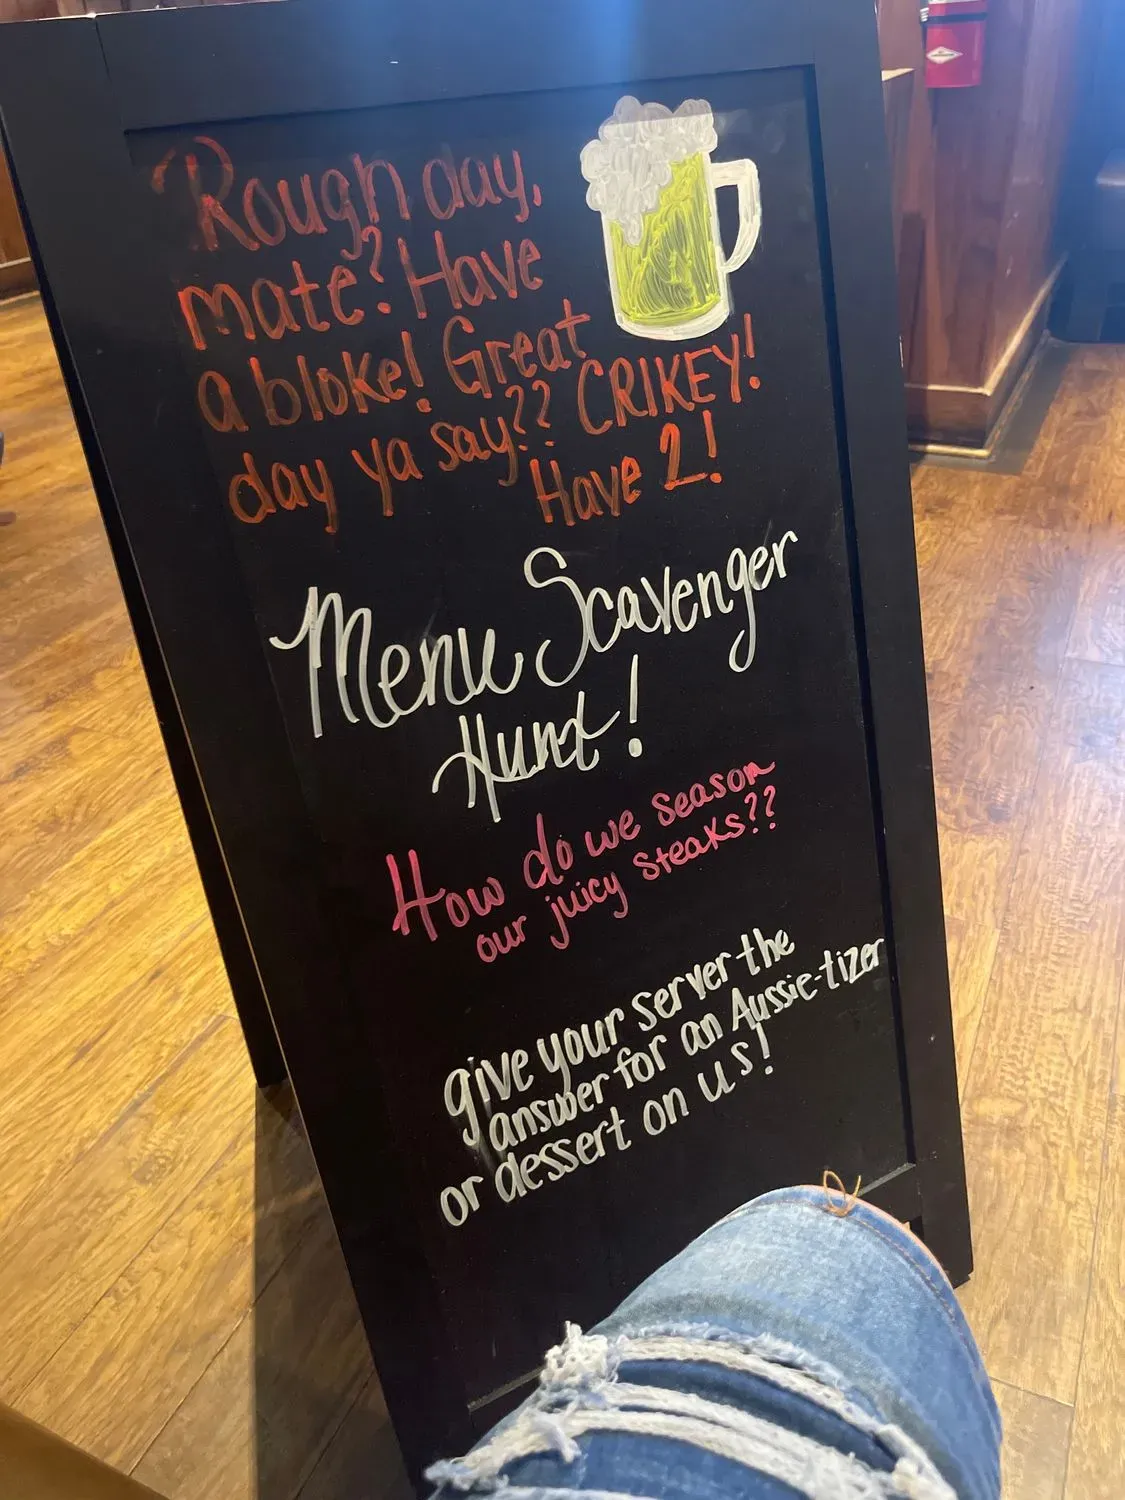 Rough day,
mate? Have
a bloke! Great
day ya say?? CRIKEY!
Have 2!
Menu Scavenger
Hunt!
How do we season
our juicy steaks??
give your server the
answer for an Aussie-tizer
or dessert on us!